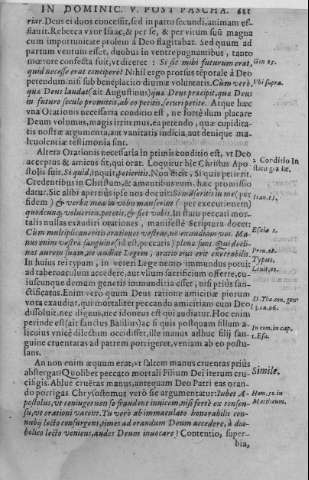 IN DOMINIC. V. POST PASCHA.
rior. Deus ei duos concessit, sed in partu secundi, animam ef-
flauit. Rebecca vxor Isaac, & per se, & per virum suũ magna
cum importunitate prolem à Deo flagitabat. Sed quum ad
partum ventum esset, duobus in ventre pugnantibus, tanto
mœrore confecta fuit, vt diceret: Si sic mihi futurum erat,
quid necesse erat concipere? Nihil ergo prorsus tẽporale à Deo
petendum nisi sub beneplacito diuinæ voluntatis. Cum verò,
quæ Deus laudat (ait Augustinus) quæ Deus præcipit, quæ Deus
in futuro seculo promittit, ab eo petitis, securi petite. Atque hæc
vna Orationis necessaria conditio est, ne fortè dum placare
Deum volumus, magis irritemus, ea petendo, quæ cupidita-
tis nostræ argumenta, aut vanitatis indicia, aut denique ma-
leuolentiæ testimonia sint.
Altera Orationis necessaria in primis conditio est, vt Deo
acceptus & amicus sit, qui orat. Loquitur hîc Christus Apo-
stolis suis, Si quid, inquit, petieritis. Non dicit, Si quis petierit.
Credentibus in Christum, & amantibus eum, hæc promissio
datur. Sic alibi apertius ipse nos docuit: Si manseritis in me (per
fidem) & verba mea in vobis manserint (per executionem)
quodcunq; volueritis, petetis, & fiet vobis. In statu peccati mor-
talis nullas exaudiri orationes, manifestè Scriptura docet:
Cum multiplicaueritis orationes vestras, nõ exaudiam vos. Ma-
nus enim vestræ sanguine (id est, peccatis) plenæ sunt. Qui decli-
nat aurem suam, ne audiat Legem, oratio eius erit execrabilis.
In huius rei typum, in veteri Lege nemo immundus poterat
ad tabernaculum accedere, aut vllum sacrificium offerre, cu-
iuscunque demum generis immunditia esset, nisi priùs san-
ctificatus. Enim verò quum Deus ratione amicitiæ piorum
vota exaudiat, qui mortaliter peccando amicitiam cum Deo
dissoluit, nec dignus, nec idoneus est qui audiatur. Hoc enim
perinde est (ait sanctus Basilius) ac si quis postquam filium a-
licuius vnicè dilectum occidisset, ille manus adhuc filij san-
guine cruentatas ad patrem porrigeret, veniam ab eo postu-
lans.
An non enim æquum erat, vt saltem manus cruentas priùs
abstergat? Quolibet peccato mortali Filium Dei iterum cru-
cifigis. Ablue cruẽtas manus, antequam Deo Patri eas oran-
do porrigas. Chrysostomus verò sic argumentatur: Iubet A-
postolus, vt coniuges non se fraudent inuicem, nisi fortè ex consen-
su, vt orationi vacent. Tu verò ab immaculato honorabilis con-
nubij lecto consurgens, times ad orandum Deum accedere, à dia-
bolico lecto veniens, audes Deum inuocare? Contentio, super-
bia,
Gen. 25.
Vbi supra.
2 Conditio In
statu gratiæ.
Ioan. 15.
Esaiæ 1.
Prou. 28.
Typus.
Leuit. 22.
In com. in cap.
1. Esa.
Simile.
Hom. 51. in
Matthæum.